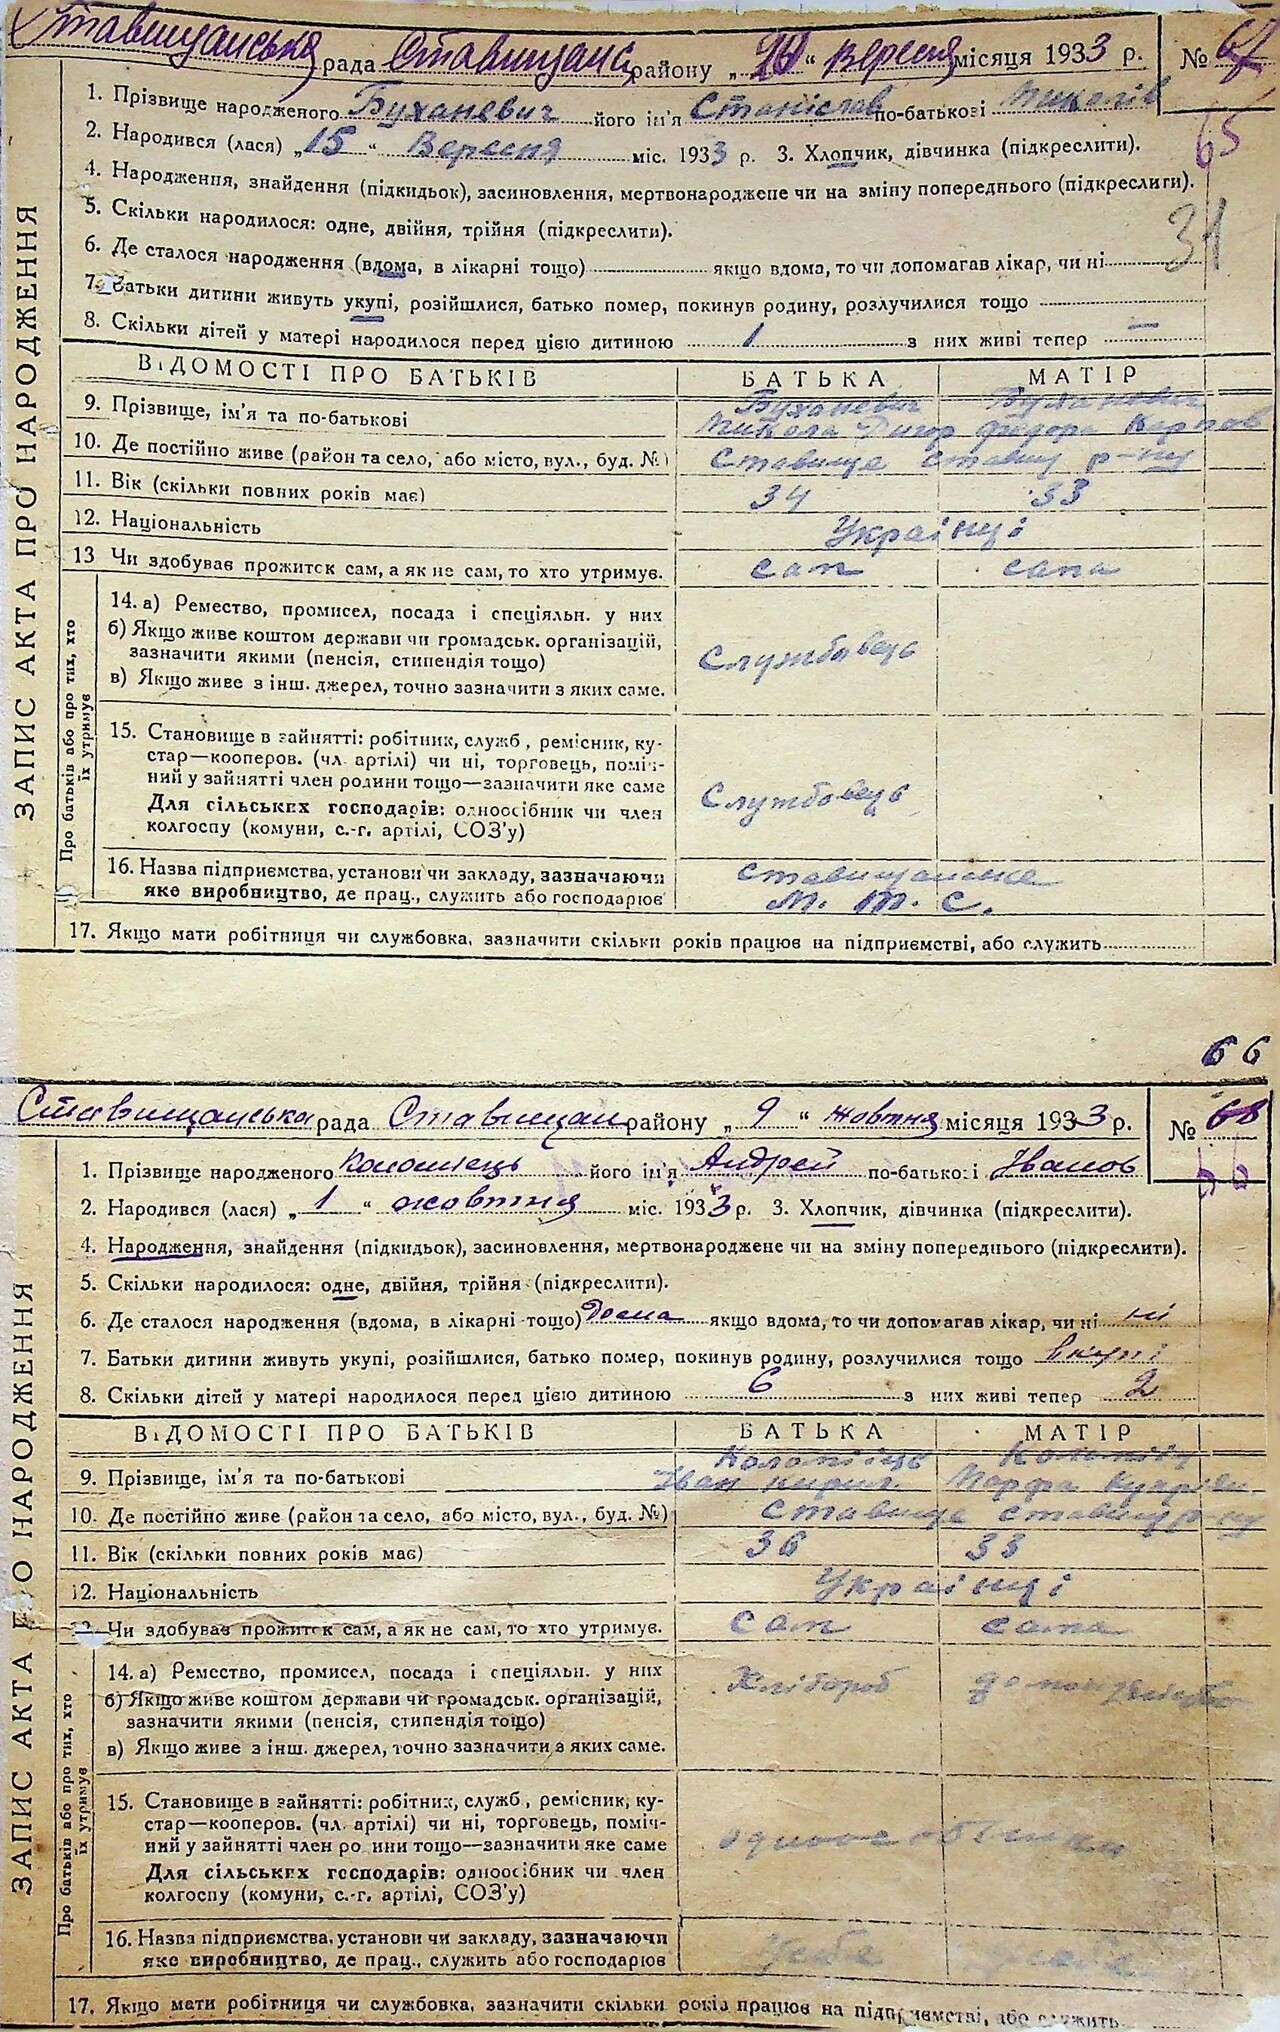 Ставищанська рада Ставищанс району „20“ Вересня місяця 1933 р. № 67
65
1. Прізвище народженого Буханевич його ім'я Станіслав по-батькові Миколів
2. Народився (лася) „15“ Вересня міс. 1933 р. 3. Хлопчик, дівчинка (підкреслити).
4. Народження, знайдення (підкидьок), засиновлення, мертвонароджене чи на зміну попереднього (підкреслити).
31
5. Скільки народилося: одне, двійня, трійня (підкреслити).
6. Де сталося народження (вдома, в лікарні тощо) якщо вдома, то чи допомагав лікар, чи ні
7. Батьки дитини живуть укупі, розійшлися, батько помер, покинув родину, розлучилися тощо
8. Скільки дітей у матері народилося перед цією дитиною 1 з них живі тепер —
ВІДОМОСТІ ПРО БАТЬКІВ БАТЬКА МАТІР
9. Прізвище, ім'я та по-батькові Буханевич Микола Григор Буханевич Федора Карпов
10. Де постійно живе (район та село, або місто, вул., буд. №) Ставище ставищ р-ну
11. Вік (скільки повних років має) 34 33
12. Національність Українці
13 Чи здобуває прожиток сам, а як не сам, то хто утримує. сам сама
14. а) Ремество, промисел, посада і спеціяльн. у них
б) Якщо живе коштом держави чи громадськ. організацій,
зазначити якими (пенсія, стипендія тощо)
Службовець
в) Якщо живе з інш. джерел, точно зазначити з яких саме.
15. Становище в зайнятті: робітник, служб, ремісник, ку-
стар—кооперов. (чл. артілі) чи ні, торговець, поміч-
ний у зайнятті член родини тощо—зазначити яке саме
Службовець
Для сільських господарів: одноосібник чи член
колгоспу (комуни, с.-г. артілі, СОЗ'у)
16. Назва підприємства, установи чи закладу, зазначаючи Ставищанське
яке виробництво, де прац., служить або господарює М. Т. С.
17. Якщо мати робітниця чи службовка, зазначити скільки років працює на підприємстві, або служить
ЗАПИС АКТА ПРО НАРОДЖЕННЯ
Про батьків або про тих, хто
їх утримує
66
Ставищанська рада Ставищан району „9“ жовтня місяця 1933 р. № 68
1. Прізвище народженого Коломієць його ім'я Андрей по-батькові Іванов
2. Народився (лася) „1“ жовтня міс. 1933 р. 3. Хлопчик, дівчинка (підкреслити).
4. Народження, знайдення (підкидьок), засиновлення, мертвонароджене чи на зміну попереднього (підкреслити).
5. Скільки народилося: одне, двійня, трійня (підкреслити).
6. Де сталося народження (вдома, в лікарні тощо) дома якщо вдома, то чи допомагав лікар, чи ні ні
7. Батьки дитини живуть укупі, розійшлися, батько помер, покинув родину, розлучилися тощо вкупі
8. Скільки дітей у матері народилося перед цією дитиною 6 з них живі тепер 2
ВІДОМОСТІ ПРО БАТЬКІВ БАТЬКА МАТІР
9. Прізвище, ім'я та по-батькові Коломієць Іван Кирил. Марфа
10. Де постійно живе (район та село, або місто, вул., буд. №) Ставище ставищ р-ну
11. Вік (скільки повних років має) 36 33
12. Національність Українці
Чи здобуває прожиток сам, а як не сам, то хто утримує. сам сама
14. а) Ремество, промисел, посада і спеціяльн. у них Хлібороб
б) Якщо живе коштом держави чи громадськ. організацій,
зазначити якими (пенсія, стипендія тощо)
в) Якщо живе з інш. джерел, точно зазначити з яких саме.
15. Становище в зайнятті: робітник, служб, ремісник, ку-
стар—кооперов. (чл. артілі) чи ні, торговець, поміч-
ний у зайнятті член ро ини тощо—зазначити яке саме одноосібники
Для сільських господарів: одноосібник чи член
колгоспу (комуни, с.-г. артілі, СОЗ'у)
16. Назва підприємства, установи чи закладу, зазначаючи
яке виробництво, де прац., служить або господарює
17. Якщо мати робітниця чи службовка, зазначити скільки років працює на підприємстві, або служить
ЗАПИС АКТА ПРО НАРОДЖЕННЯ
Про батьків або про тих, хто
їх утримує